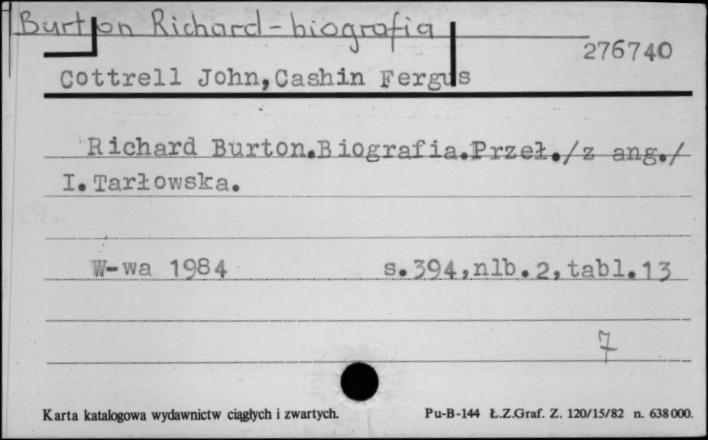 Burton Richard - biografia
276740
Cottrell John,Cashin Fergus
Richard Burton.Biografia.Przeł./z ang./
I.Tarłowska.
W-wa 1984 s.394,nlb.2,tabl.13
7
Karta katalogowa wydawnictw ciągłych i zwartych. Pu-B-144 Ł.Z.Graf. Z. 120/15/82 n. 638000.